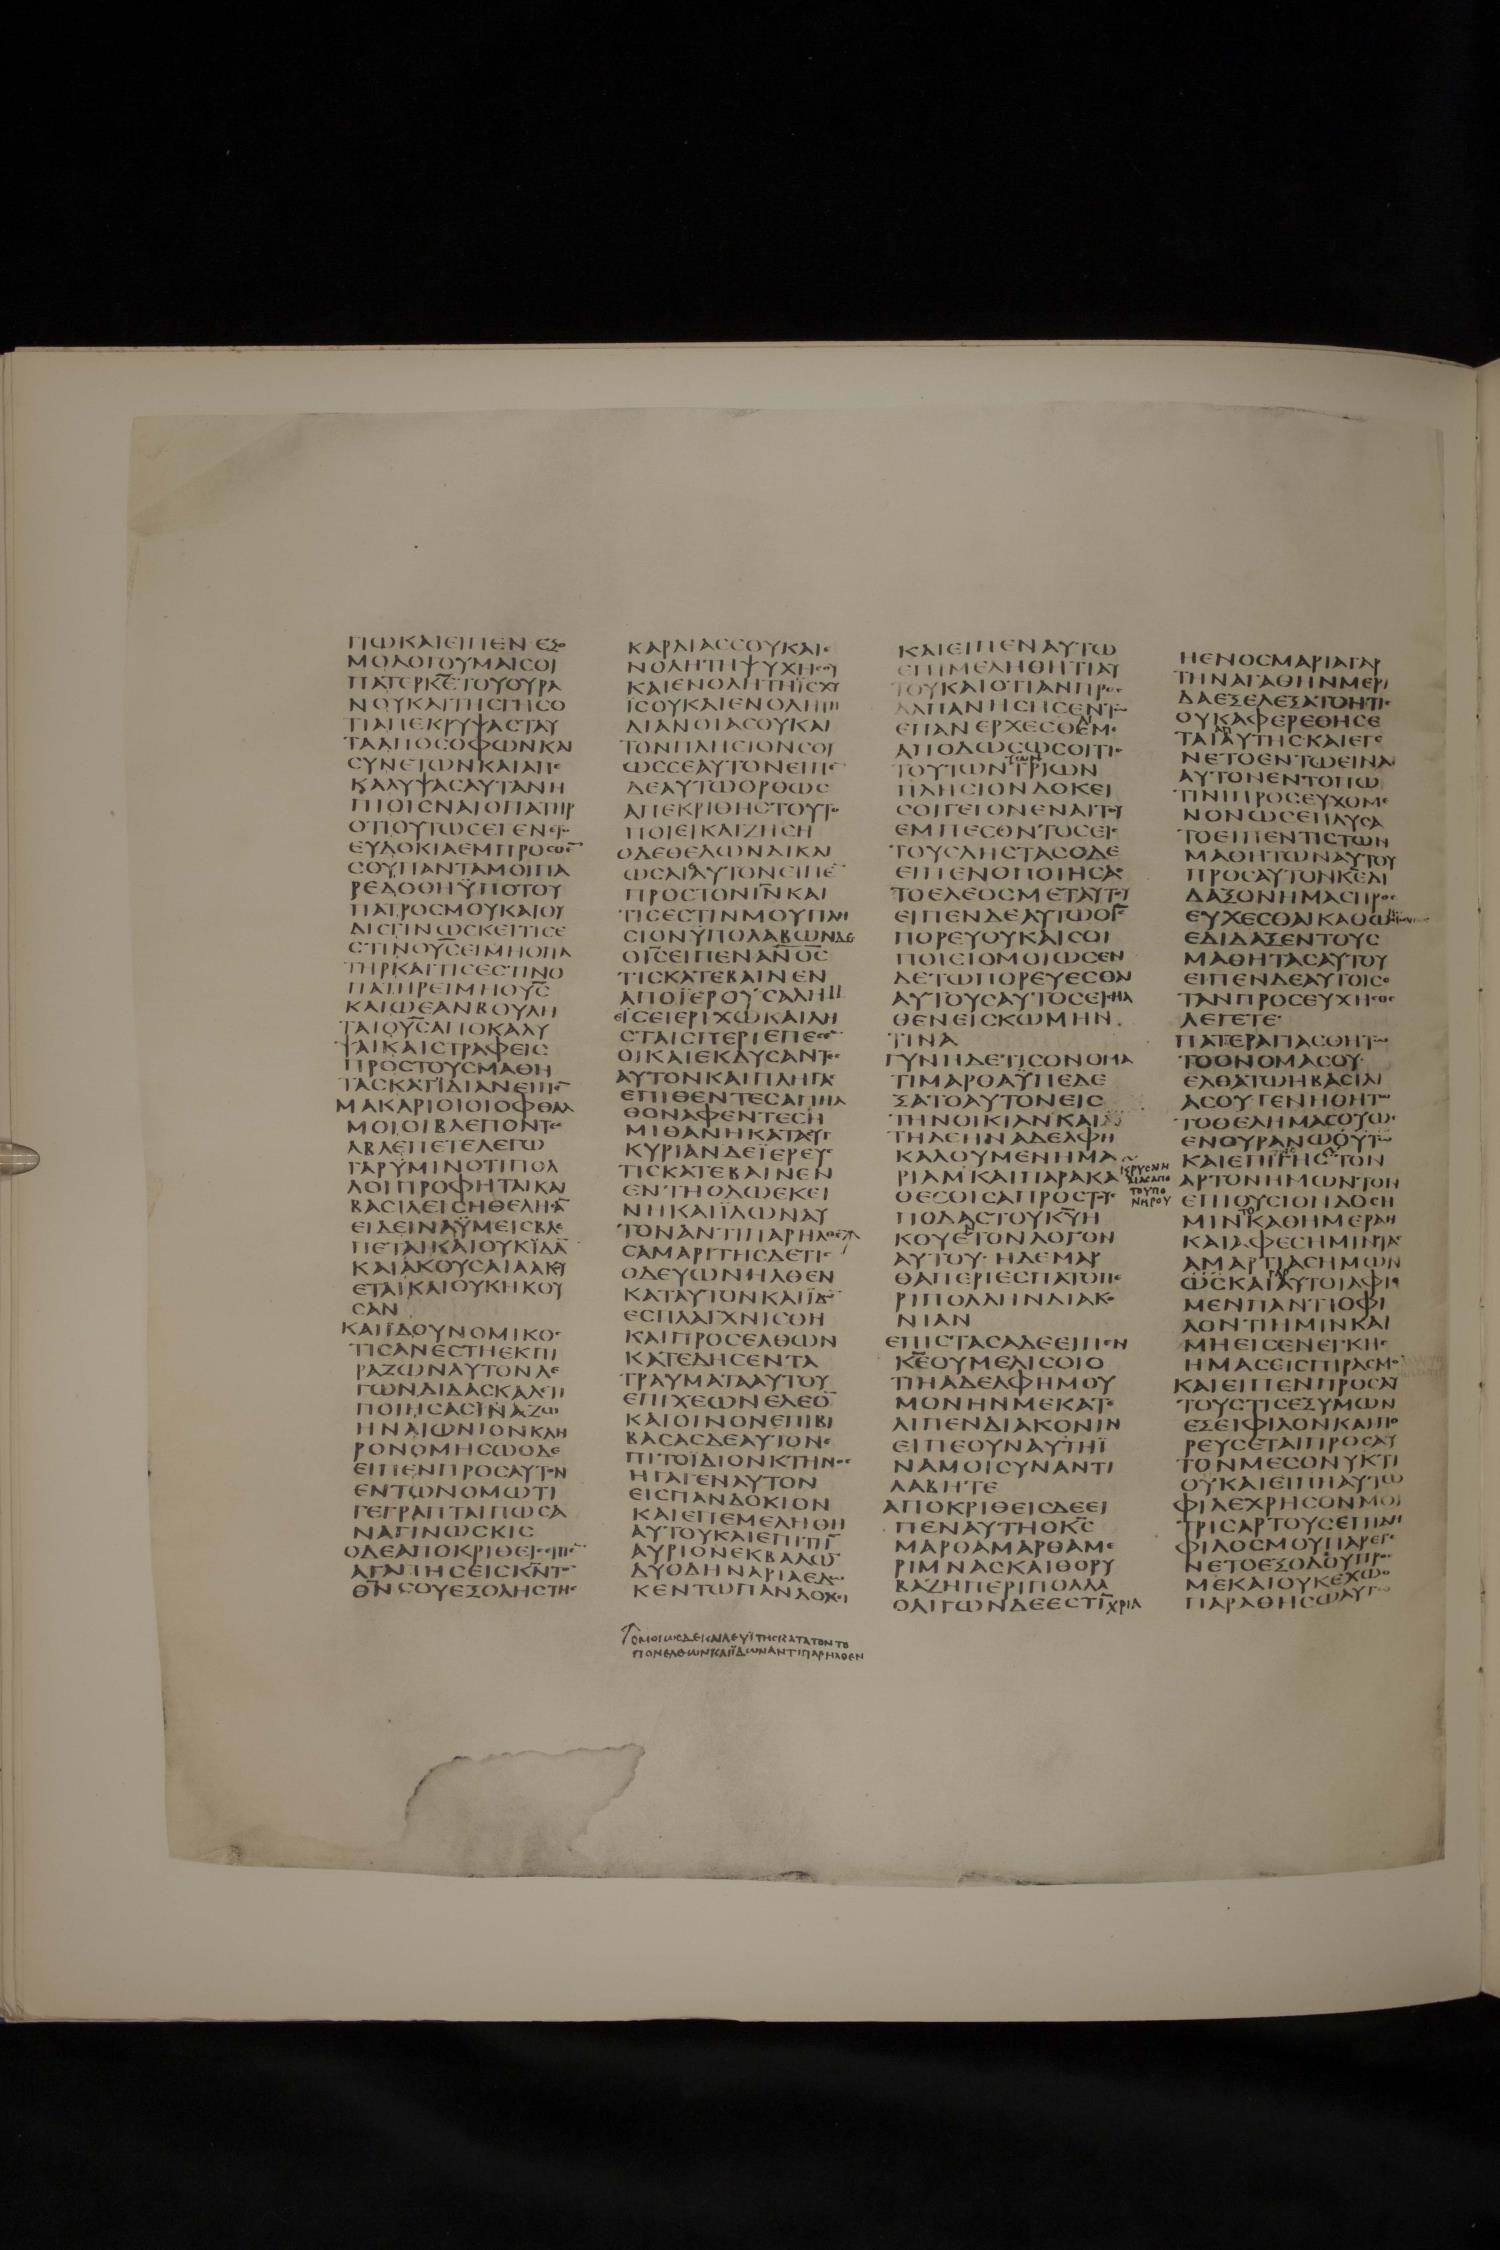 ΠΩΚΑΙΕΙΠΕΝ ΕΞΟ
ΜΟΛΟΓΟΥΜΑΙϹΟΙ
ΠΑΤΕΡΚ̅Ε̅ΤΟΥΟΥΡΑ
ΝΟΥΚΑΙΤΗϹΓΗϹΟ
ΤΙΑΠΕΚΡΥΨΑϹΤΑΥ
ΤΑΑΠΟϹΟΦΩΝΚΑΙ
ϹΥΝΕΤΩΝΚΑΙΑΠΕ
ΚΑΛΥΨΑϹΑΥΤΑΝΗ
ΠΙΟΙϹΝΑΙΟΠΑΤΗΡ
ΟΤΙΟΥΤΩϹΕΓΕΝΕΤ̅
ΕΥΔΟΚΙΑΕΜΠΡΟϹΘΕ̅
ϹΟΥΠΑΝΤΑΜΟΙΠΑ
ΡΕΔΟΘΗΫΠΟΤΟΥ
ΠΑΤΡΟϹΜΟΥΚΑΙΟΥ
ΔΙϹΓΙΝΩϹΚΕΙΤΙϹΕ
ϹΤΙΝΟΥ̅Ϲ̅ΕΙΜΗΟΠΑ
ΤΗΡΚΑΙΤΙϹΕϹΤΙΝΟ
ΠΑΤΗΡΕΙΜΗΟΥ̅Ϲ̅
ΚΑΙΩΕΑΝΒΟΥΛΗ
ΤΑΙΟΥ̅Ϲ̅ΑΠΟΚΑΛΥ
ΨΑΙΚΑΙϹΤΡΑΦΕΙϹ
ΠΡΟϹΤΟΥϹΜΑΘΗ
ΤΑϹΚΑΤΙΔΙΑΝΕΙΠΕ̅
ΜΑΚΑΡΙΟΙΟΙΟΦΘΑΛ
ΜΟΙΟΙΒΛΕΠΟΝΤΕϹ
ΑΒΛΕΠΕΤΕΛΕΓΩ
ΓΑΡΫΜΙΝΟΤΙΠΟΛ
ΛΟΙΠΡΟΦΗΤΑΙΚΑΙ
ΒΑϹΙΛΕΙϹΗΘΕΛΗϹΑ̅
ΕΙΔΕΙΝΑΫΜΕΙϹΒΛΕ
ΠΕΤΑΙΚΑΙΟΥΚΪΔΑ̅
ΚΑΙΑΚΟΥϹΑΙΑΑΚΟΥ
ΕΤΑΙΚΑΙΟΥΚΗΚΟΥ
ϹΑΝ
ΚΑΙΪΔΟΥΝΟΜΙΚΟϹ
ΤΙϹΑΝΕϹΤΗΕΚΠΙ
ΡΑΖΩΝΑΥΤΟΝΛΕ
ΓΩΝΔΙΔΑϹΚΑΛΕΤΙ
ΠΟΙΗϹΑϹΪΝΑΖΩ
ΗΝΑΙΩΝΙΟΝΚΛΗ
ΡΟΝΟΜΗϹΩΟΔΕ
ΕΙΠΕΝΠΡΟϹΑΥΤΟΝ
ΕΝΤΩΝΟΜΩΤΙ
ΓΕΓΡΑΠΤΑΙΠΩϹΑ
ΝΑΓΙΝΩϹΚΙϹ
ΟΔΕΑΠΟΚΡΙΘΕΙϹΕΙΠΕ̅
ΑΓΑΠΗϹΕΙϹΚ̅Ν̅ΤΟΝ
Θ̅Ν̅ϹΟΥΕΞΟΛΗϹΤΗϹ
ΚΑΡΔΙΑϹϹΟΥΚΑΙΕ
ΝΟΛΗΤΗΨΥΧΗϹΟΥ
ΚΑΙΕΝΟΛΗΤΗΪϹΧΥ
ΪϹΟΥΚΑΙΕΝΟΛΗΤΗ
ΔΙΑΝΟΙΑϹΟΥΚΑΙ
ΤΟΝΠΛΗϹΙΟΝϹΟΥ
ΩϹϹΕΑΥΤΟΝΕΙΠΕ
ΔΕΑΥΤΩΟΡΘΩϹ
ΑΠΕΚΡΙΘΗϹΤΟΥΤΟ
ΠΟΙΕΙΚΑΙΖΗϹΗ
ΟΔΕΘΕΛΩΝΔΙΚΑΙ
ΩϹΑΙΑΥΤΟΝΕΙΠΕ̅
ΠΡΟϹΤΟΝΙ̅Ν̅ΚΑΙ
ΤΙϹΕϹΤΙΝΜΟΥΠΛΗ
ϹΙΟΝΫΠΟΛΑΒΩΝΔΕ
ΟΙ̅Ϲ̅ΕΙΠΕΝΑ̅Ν̅Ο̅Ϲ̅
ΤΙϹΚΑΤΕΒΑΙΝΕΝ
ΑΠΟΪΕΡΟΥϹΑΛΗΜ
ΕΙϹΕΙΕΡΙΧΩΚΑΙΛΗ
ϹΤΑΙϹΠΕΡΙΕΠΕϹΕ̅
ΟΙΚΑΙΕΚΔΥϹΑΝΤΕϹ
ΑΥΤΟΝΚΑΙΠΛΗΓΑϹ
ΕΠΙΘΕΝΤΕϹΑΠΗΛ
ΘΟΝΑΦΕΝΤΕϹΗ
ΜΙΘΑΝΗΚΑΤΑϹΥΓ
ΚΥΡΙΑΝΔΕΪΕΡΕΥϹ
ΤΙϹΚΑΤΕΒΑΙΝΕΝ
ΕΝΤΗΟΔΩΕΚΕΙ
ΝΗΚΑΙΪΔΩΝΑΥ
ΤΟΝΑΝΤΙΠΑΡΗΛΘΕ̅
ϹΑΜΑΡΙΤΗϹΔΕΤΙϹ
ΟΔΕΥΩΝΗΛΘΕΝ
ΚΑΤΑΥΤΟΝΚΑΙΪΔΩ̅
ΕϹΠΛΑΓΧΝΙϹΘΗ
ΚΑΙΠΡΟϹΕΛΘΩΝ
ΚΑΤΕΔΗϹΕΝΤΑ
ΤΡΑΥΜΑΤΑΑΥΤΟΥ
ΕΠΙΧΕΩΝΕΛΕΟ̅
ΚΑΙΟΙΝΟΝΕΠΙΒΙ
ΒΑϹΑϹΔΕΑΥΤΟΝΕ
ΠΙΤΟΪΔΙΟΝΚΤΗΝΟϹ
ΗΓΑΓΕΝΑΥΤΟΝ
ΕΙϹΠΑΝΔΟΚΙΟΝ
ΚΑΙΕΠΕΜΕΛΗΘΗ
ΑΥΤΟΥΚΑΙΕΠΙΤΗ̅
ΑΥΡΙΟΝΕΚΒΑΛΩ̅
ΔΥΟΔΗΝΑΡΙΑΕΔΩ
ΚΕΝΤΩΠΑΝΔΟΚΙ
ΟΜΟΙΩϹΔΕΚΑΙΛΕΥΪΤΗϹΚΑΤΑΤΟΝΤΟ
ΠΟΝΕΛΘΩΝΚΑΙΪΔΩΝΑΝΤΙΠΑΡΗΛΘΕΝ
ΚΑΙΕΙΠΕΝΑΥΤΩ
ΕΠΙΜΕΛΗΘΗΤΙΑΥ
ΤΟΥΚΑΙΟΤΙΑΝΠΡΟϹ
ΔΑΠΑΝΗϹΗϹΕΝΤΩ
ΕΠΑΝΕΡΧΕϹΘΕΜΕ
ΑΠΟΔΩϹΩϹΟΙΤΙϹ
ΤΟΥΤΩΝΤΡΙΩΝ
ΤΩΝ
ΠΛΗϹΙΟΝΔΟΚΕΙ
ϹΟΙΓΕΓΟΝΕΝΑΙΤΟΥ
ΕΜΠΕϹΟΝΤΟϹΕΙϹ
ΤΟΥϹΛΗϹΤΑϹΟΔΕ
ΕΙΠΕΝΟΠΟΙΗϹΑϹ
ΤΟΕΛΕΟϹΜΕΤΑΥΤΟΥ
ΕΙΠΕΝΔΕΑΥΤΩΟΙ̅Ϲ̅
ΠΟΡΕΥΟΥΚΑΙϹΟΙ
ΠΟΙΕΙΟΜΟΙΩϹΕΝ
ΔΕΤΩΠΟΡΕΥΕϹΘΑΙ
ΑΥΤΟΥϹΑΥΤΟϹΕΙϹΗΛ
ΘΕΝΕΙϹΚΩΜΗΝ
ΤΙΝΑ
ΓΥΝΗΔΕΤΙϹΟΝΟΜΑ
ΤΙΜΑΡΘΑΫΠΕΔΕ
ΞΑΤΟΑΥΤΟΝΕΙϹ
ΤΗΝΟΙΚΙΑΝΚΑΙ
ΤΗΔΕΗΝΑΔΕΛΦΗ
ΚΑΛΟΥΜΕΝΗΜΑ
ΡΙΑΜΚΑΙΠΑΡΑΚΑ
ΘΕϹΘΙϹΑΠΡΟϹΤΟΥϹ
ΠΟΔΑϹΤΟΥΚ̅Υ̅Η
ΚΟΥΕΤΟΝΛΟΓΟΝ
ΑΥΤΟΥ ΗΔΕΜΑΡ
ΘΑΠΕΡΙΕϹΠΑΤΟΠΕ
ΡΙΠΟΛΛΗΝΔΙΑΚΟ
ΝΙΑΝ
ΕΠΙϹΤΑϹΑΔΕΕΙΠΕΝ
Κ̅Ε̅ΟΥΜΕΛΙϹΟΙΟ
ΤΙΗΑΔΕΛΦΗΜΟΥ
ΜΟΝΗΝΜΕΚΑΤΕ
ΛΙΠΕΝΔΙΑΚΟΝΙΝ
ΕΙΠΕΟΥΝΑΥΤΗΪ
ΝΑΜΟΙϹΥΝΑΝΤΙ
ΛΑΒΗΤΕ
ΑΠΟΚΡΙΘΕΙϹΔΕΕΙ
ΠΕΝΑΥΤΗΟΚ̅Ϲ̅
ΜΑΡΘΑΜΑΡΘΑΜΕ
ΡΙΜΝΑϹΚΑΙΘΟΡΥ
ΒΑΖΗΠΕΡΙΠΟΛΛΑ
ΟΛΙΓΩΝΔΕΕϹΤΙ̅ΧΡΙΑ
ΙϹΡΥϹΑΙΗ
ΜΑϹΑΠΟ
ΤΟΥΠΟ
ΝΗΡΟΥ
ΗΕΝΟϹΜΑΡΙΑΓΑΡ
ΤΗΝΑΓΑΘΗΝΜΕΡΙ
ΔΑΕΞΕΛΕΞΑΤΟΗΤΙϹ
ΟΥΚΑΦΕΡΕΘΗϹΕ
ΤΑΙΑΥΤΗϹΚΑΙΕΓΕ
ΝΕΤΟΕΝΤΩΕΙΝΑΙ
ΑΥΤΟΝΕΝΤΟΠΩ
ΤΙΝΙΠΡΟϹΕΥΧΟΜΕ
ΝΟΝΩϹΕΠΑΥϹΑ
ΤΟΕΙΠΕΝΤΙϹΤΩΝ
ΜΑΘΗΤΩΝΑΥΤΟΥ
ΠΡΟϹΑΥΤΟΝΚ̅Ε̅ΔΙ
ΔΑΞΟΝΗΜΑϹΠΡΟϹ
ΕΥΧΕϹΘΑΙΚΑΘΩϹ
ΕΔΙΔΑΞΕΝΤΟΥϹ
ΜΑΘΗΤΑϹΑΥΤΟΥ
ΕΙΠΕΝΔΕΑΥΤΟΙϹΟ
ΤΑΝΠΡΟϹΕΥΧΗϹΘΕ
ΛΕΓΕΤΕ
ΠΑΤΕΡΑΓΙΑϹΘΗΤΩ
ΤΟΟΝΟΜΑϹΟΥ
ΕΛΘΑΤΩΗΒΑϹΙΛΙ
ΑϹΟΥ ΓΕΝΗΘΗΤΩ
ΤΟΘΕΛΗΜΑϹΟΥΩϹ
ΕΝΟΥΡΑΝΩΟΥΤΩ
ΚΑΙΕΠΙΓΗϹΤΟΝ
ΑΡΤΟΝΗΜΩΝΤΟΝ
ΕΠΙΟΥϹΙΟΝΔΟϹΗ
ΜΙΝΚΑΘΗΜΕΡΑΝ
ΚΑΙΑΦΕϹΗΜΙΝΤΑϹ
ΑΜΑΡΤΙΑϹΗΜΩΝ
ΩϹΚΑΙΑΥΤΟΙΑΦΙΟ
ΜΕΝΠΑΝΤΙΟΦΙ
ΛΟΝΤΙΗΜΙΝΚΑΙ
ΜΗΕΙϹΕΝΕΓΚΗϹ
ΗΜΑϹΕΙϹΠΙΡΑϹΜΟ
ΚΑΙΕΙΠΕΝΠΡΟϹΑΥ
ΤΟΥϹΤΙϹΕΞΥΜΩΝ
ΕΞΕΙΦΙΛΟΝΚΑΙΠΟ
ΡΕΥϹΕΤΑΙΠΡΟϹΑΥ
ΤΟΝΜΕϹΟΝΥΚΤΙ
ΟΥΚΑΙΕΙΠΗΑΥΤΩ
ΦΙΛΕΧΡΗϹΟΝΜΟΙ
ΤΡΙϹΑΡΤΟΥϹΕΠΙΔΗ
ΦΙΛΟϹΜΟΥΠΑΡΕΓΕ
ΝΕΤΟΕΞΟΔΟΥΠΡΟϹ
ΜΕΚΑΙΟΥΚΕΧΩΟ
ΠΑΡΑΘΗϹΩΑΥΤΩ